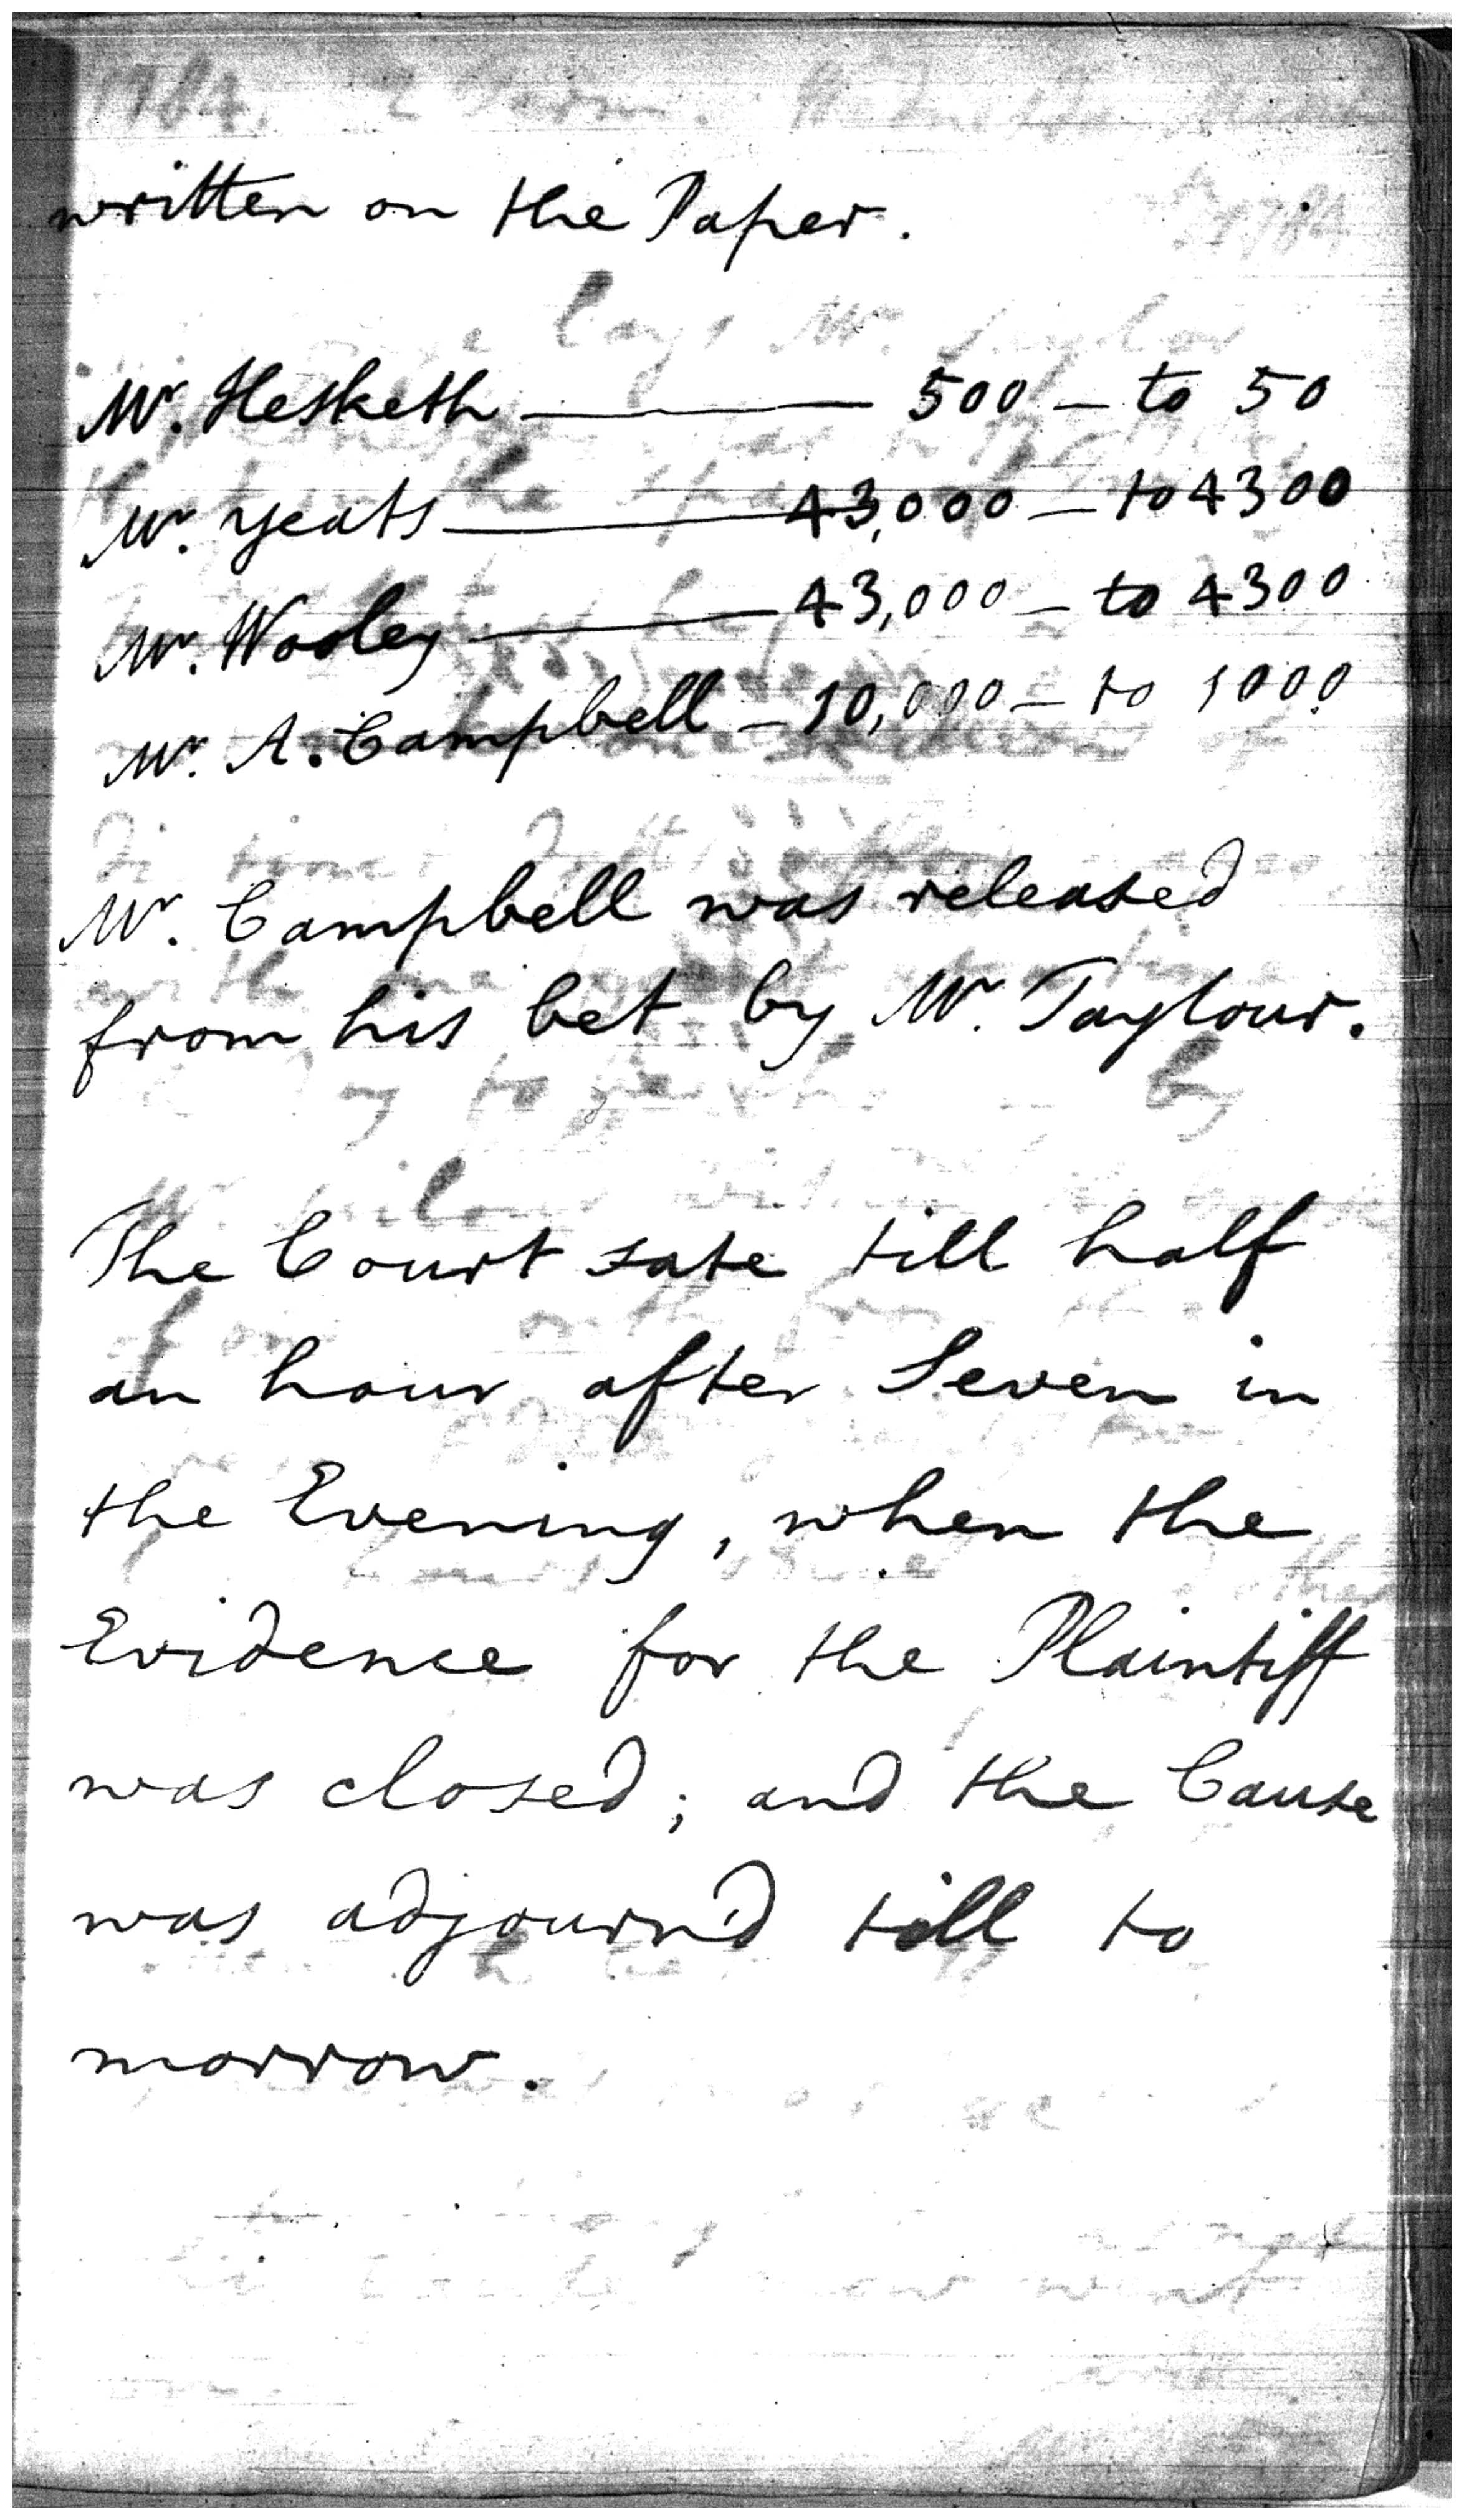 written on the Paper.
Mr. Hesketh — 500 — to 50
Mr. Yeats — 43,000 — to 4300
Mr. Wooley — 43,000 — to 4300
Mr. A. Campbell — 10,000 — to 1000
Mr. Campbell was released
from his bet by Mr. Taylour.
The Court sate till half
an hour after Seven in
the Evening, when the
Evidence for the Plaintiff
was closed; and the Cause
was adjourn'd till to
morrow.